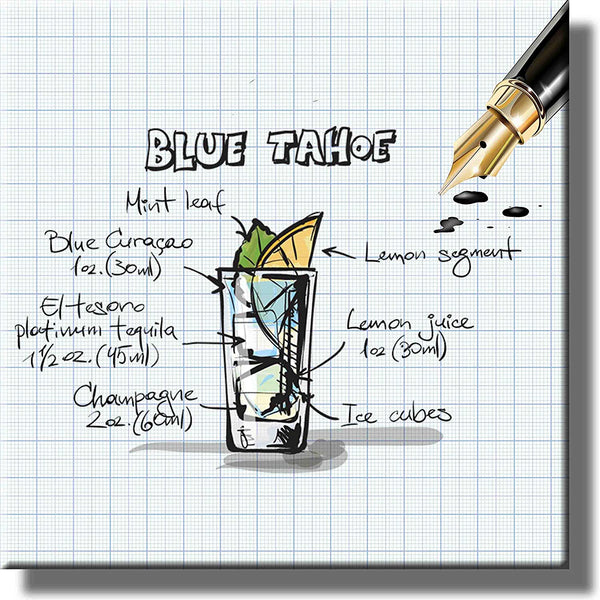 BLUE TAHOE
Mint leaf
Blue Curaçao
1oz.(30ml)
Lemon segment
El tesoro
platinum tequila
1 1/2 oz.(45ml)
Lemon juice
1oz (30ml)
Champagne
2oz.(60ml)
Ice cubes